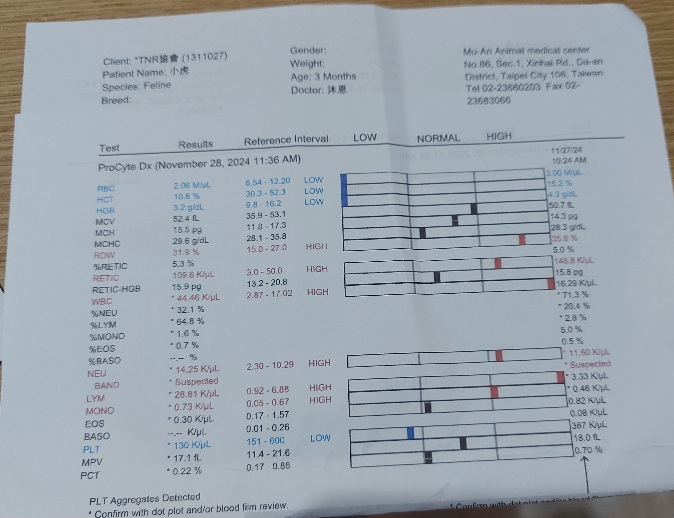 Client: *TNR協會 (1311027)
Patient Name: 小虎
Species: Feline
Breed:
Gender:
Weight:
Age: 3 Months
Doctor: 沐恩
Mu-An Animal medical center
No.86, Sec.1, Xinhai Rd., Da-an
District, Taipei City 106, Taiwan
Tel 02-23660203 Fax 02-
23683066
Test Results Reference Interval LOW NORMAL HIGH
ProCyte Dx (November 28, 2024 11:36 AM) 11/27/24
10:24 AM
RBC 2.06 M/µL 6.54 - 12.20 LOW 3.00 M/µL
HCT 10.8 % 30.3 - 52.3 LOW 15.2 %
HGB 3.2 g/dL 9.8 - 16.2 LOW 4.3 g/dL
MCV 52.4 fL 35.9 - 53.1 50.7 fL
MCH 15.5 pg 11.8 - 17.3 14.3 pg
MCHC 29.6 g/dL 28.1 - 35.8 28.3 g/dL
RDW 31.9 % 15.0 - 27.0 HIGH 35.8 %
%RETIC 5.3 % 5.0 %
RETIC 109.6 K/µL 3.0 - 50.0 HIGH 148.8 K/µL
RETIC-HGB 15.9 pg 13.2 - 20.8 15.8 pg
WBC * 44.46 K/µL 2.87 - 17.02 HIGH 16.29 K/µL
%NEU * 32.1 % * 71.3 %
%LYM * 64.8 % * 20.4 %
%MONO * 1.6 % * 2.8 %
%EOS * 0.7 % 5.0 %
%BASO --.-- % 0.5 %
NEU * 14.25 K/µL 2.30 - 10.29 HIGH * 11.60 K/µL
BAND * Suspected * Suspected
LYM * 28.81 K/µL 0.92 - 6.88 HIGH * 3.33 K/µL
MONO * 0.73 K/µL 0.05 - 0.67 HIGH * 0.46 K/µL
EOS * 0.30 K/µL 0.17 - 1.57 0.82 K/µL
BASO --.-- K/µL 0.01 - 0.26 0.08 K/µL
PLT * 130 K/µL 151 - 600 LOW 387 K/µL
MPV * 17.1 fL 11.4 - 21.6 18.0 fL
PCT * 0.22 % 0.17 - 0.86 0.70 %
PLT Aggregates Detected
* Confirm with dot plot and/or blood film review.
* Confirm with dot plot and/or blood film